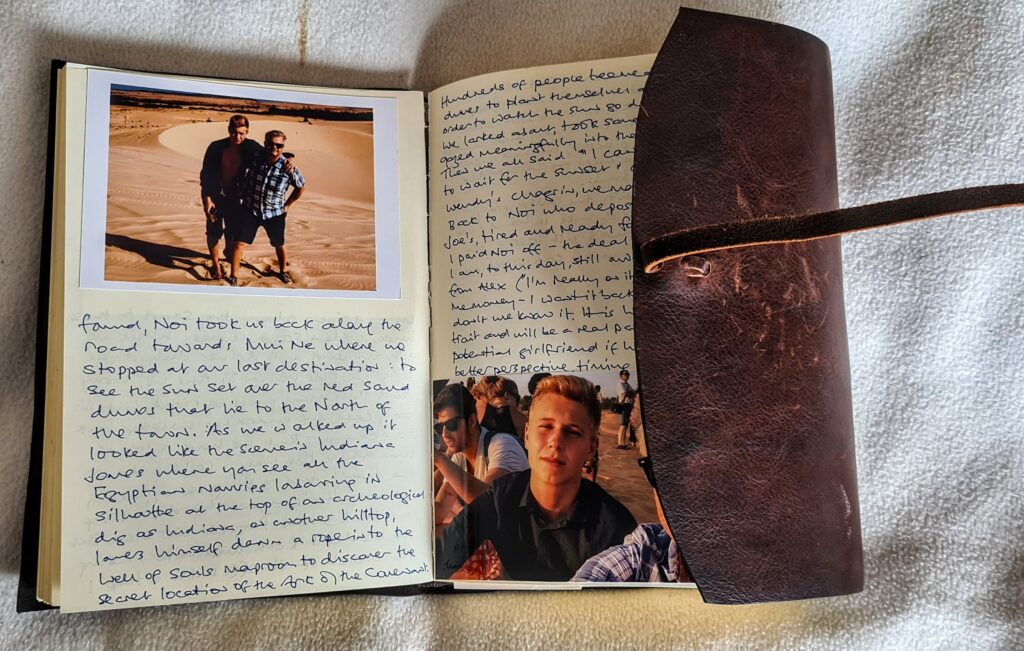 found, Noi took us back along the
road towards Mui Ne where we
stopped at our last destination: to
see the sun set over the red sand
dunes that lie to the North of
the town. As we walked up it
looked like the scene is Indiana
Jones where you see all the
Egyptian Navvies labouring in
silhouette at the top of an archeological
dig as Indiana, on another hilltop,
lowers himself down a rope into the
Well of Souls maproom to discover the
secret location of the Ark of the Covenant.
Hundreds of people
dunes to plant themselves
order to watch the sun go d
we larked about, took some
gazed meaningfully into the
Then we all said "I can
to wait for the sunset"
Wendy's clogs in, we
Back to Noi who depos
Joe's, tired and ready fo
I paid Noi off – the deal
I am, to this day, still
from Alex ("I'm really
me money – I want it back
don't we know it. It is h
trait and will be a real pa
potential girlfriend if h
better perspective. timing